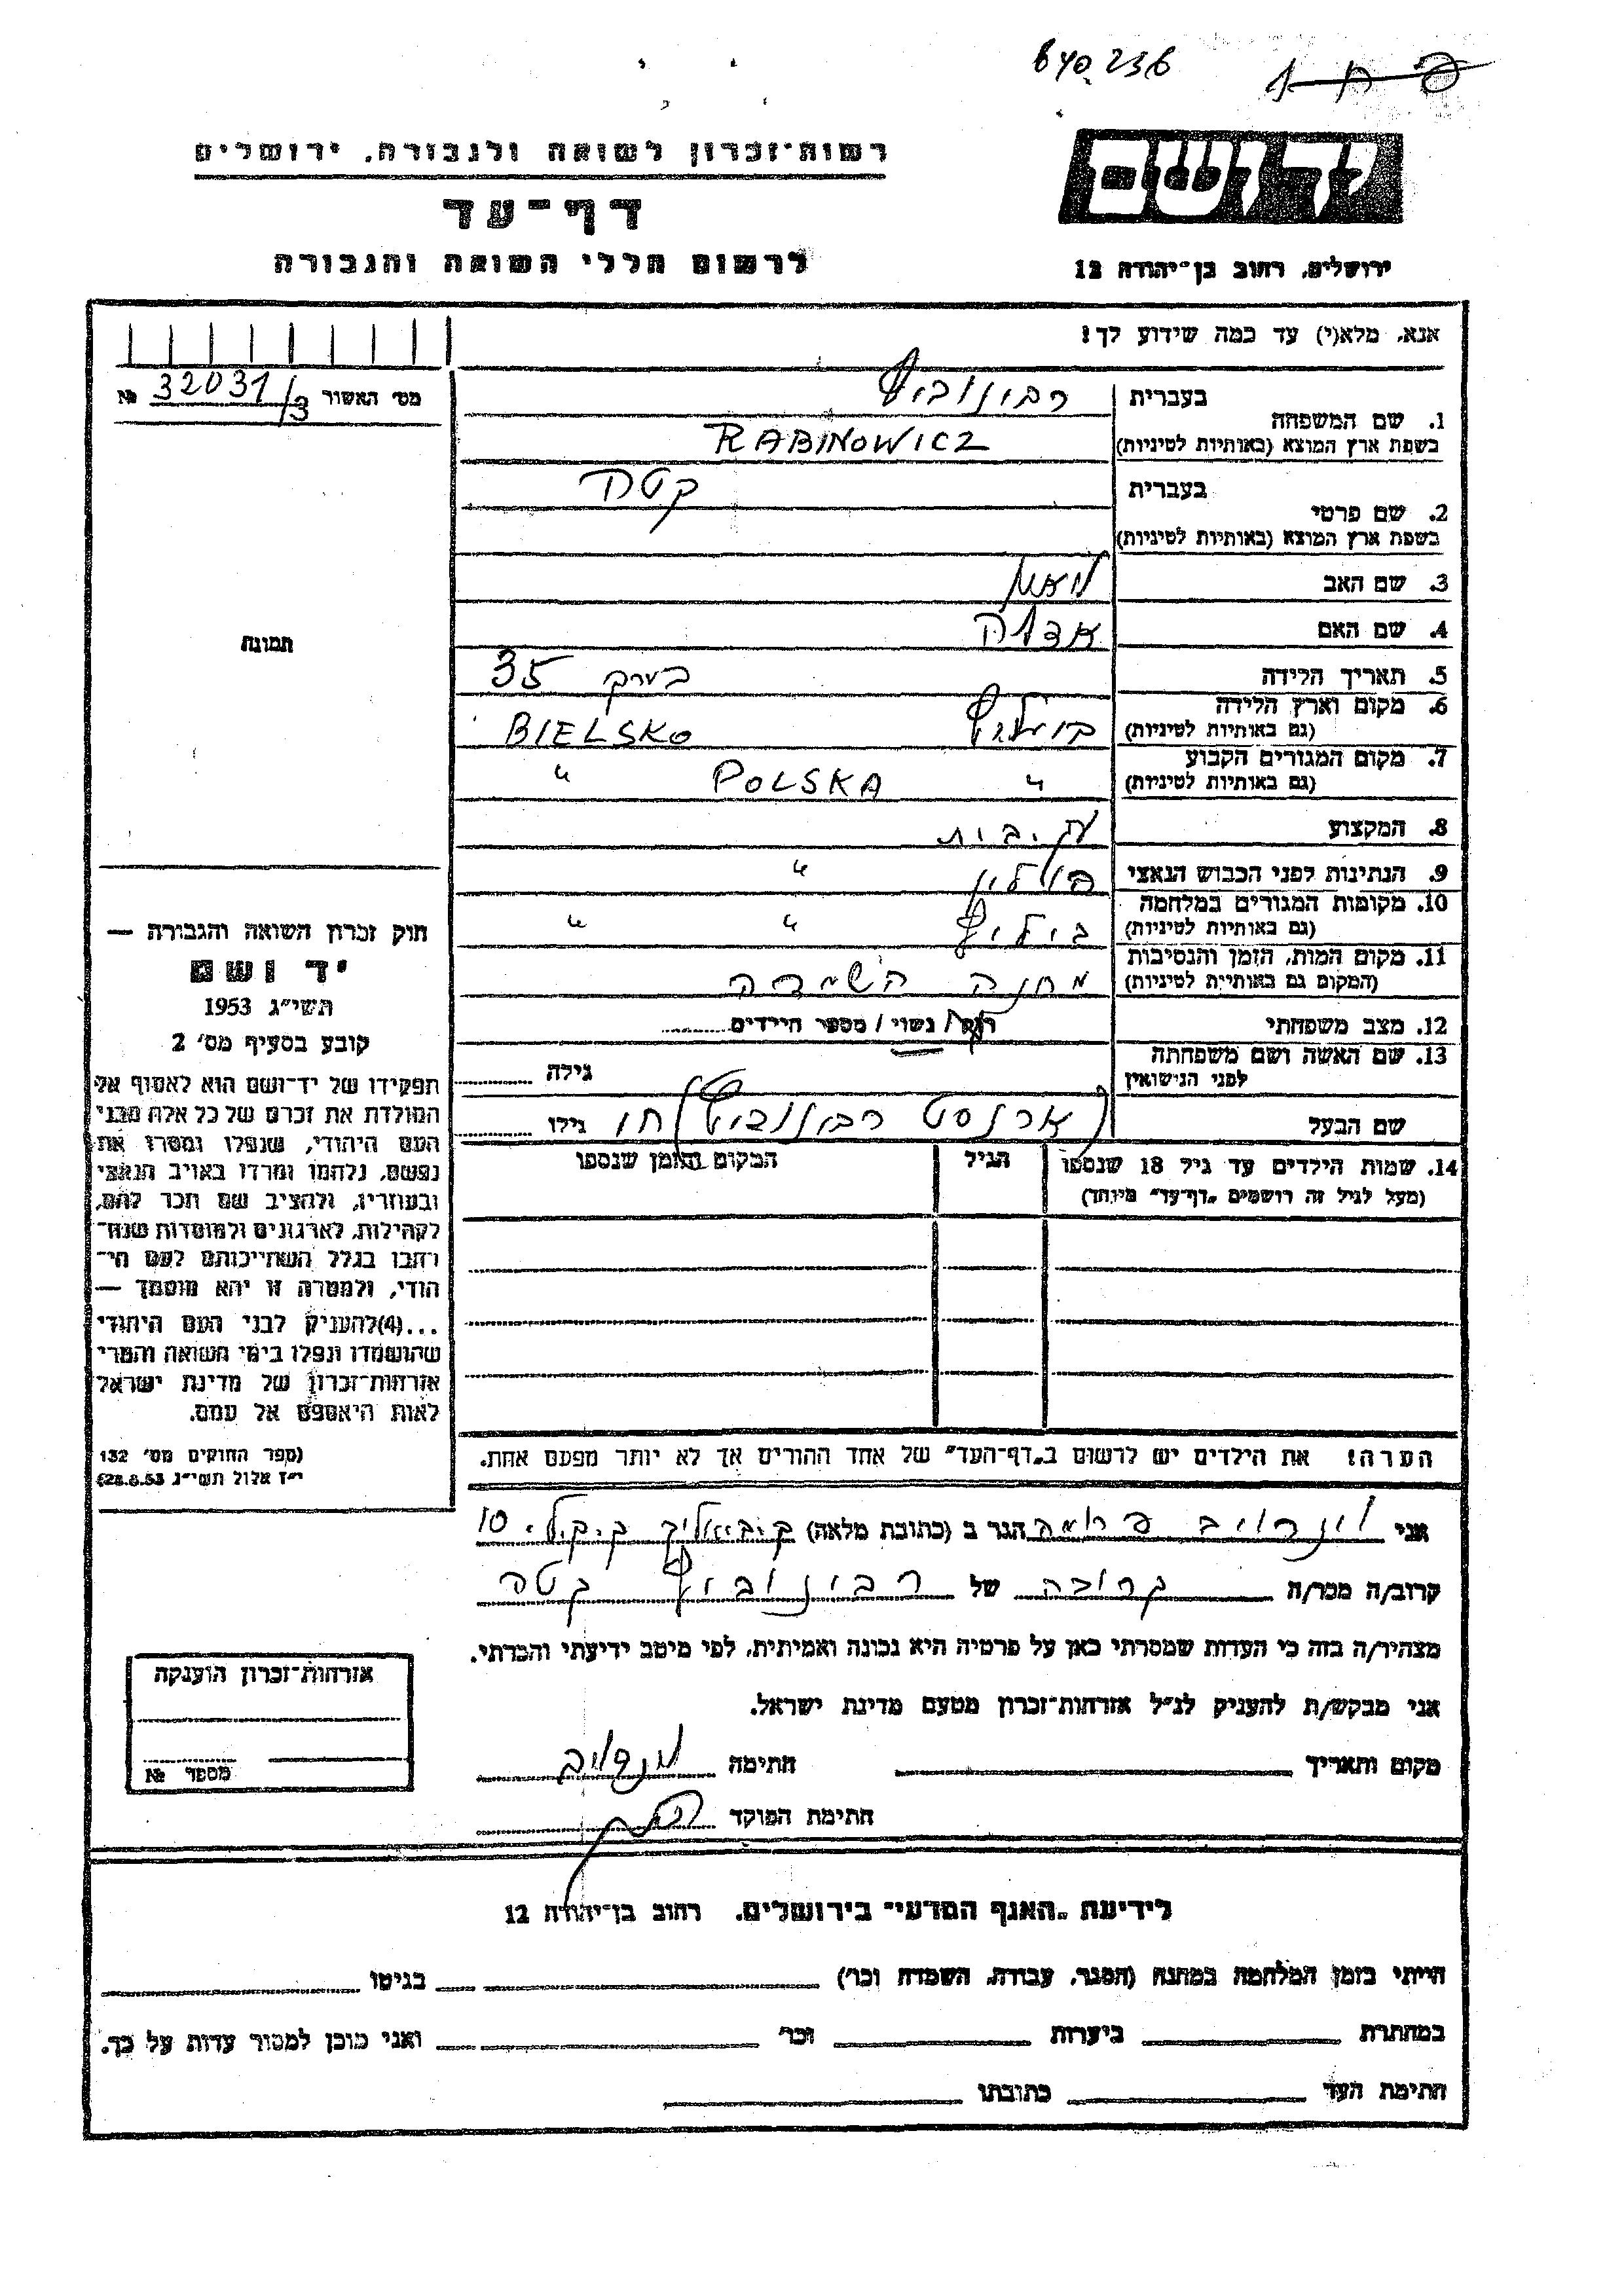 640.236
רשות־זכרון לשואה ולגבורה, ירושלים
ידושם
דף־עד
לרשום חללי השואה והגבורה
ירושלים, רחוב בן־יהודה 12
אנא, מלא(י) עד כמה שידוע לך!
מס׳ האשור 32031/3 №
1. שם המשפחה
בעברית רבינוביץ
בשפת ארץ המוצא (באותיות לטיניות) RABINOWICZ
2. שם פרטי
בעברית קטה
בשפת ארץ המוצא (באותיות לטיניות)
3. שם האב
4. שם האם
5. תאריך הלידה בערך 35
6. מקום וארץ הלידה
(גם באותיות לטיניות) BIELSKO
7. מקום המגורים הקבוע
(גם באותיות לטיניות) " POLSKA "
8. המקצוע
9. הנתינות לפני הכבוש הנאצי פולין "
10. מקומות המגורים במלחמה
(גם באותיות לטיניות) ביליץ " "
11. מקום המות, הזמן והנסיבות
(המקום גם באותיות לטיניות) מחנה השמדה
12. מצב משפחתי רוק/ נשוי/ מספר הילדים
13. שם האשה ושם משפחתה
לפני הנישואין גילה
שם הבעל (ארנסט רבינוביץ) חי גילו
14. שמות הילדים עד גיל 18 שנספו הגיל המקום והזמן שנספו
(מעל לגיל זה רושמים „דף־עד" מיוחד)
הערה! את הילדים יש לרשום ב„דף־העד" של אחד ההורים אך לא יותר מפעם אחת.
תמונה
חוק זכרון השואה והגבורה —
יד ושם
תשי״ג 1953
קובע בסעיף מס׳ 2
תפקידו של יד־ושם הוא לאסוף אל
המולדת את זכרם של כל אלה מבני
העם היהודי, שנפלו ומסרו את
נפשם, נלחמו ומרדו באויב הנאצי
ובעוזריו, ולהציב שם וזכר להם,
לקהילות, לארגונים ולמוסדות שנח־
רבו בגלל השתייכותם לעם הי־
הודי, ולמטרה זו יהא מוסמך —
...(4)להעניק לבני העם היהודי
שהושמדו ונפלו בימי השואה והמרי
אזרחות־זכרון של מדינת ישראל
לאות היאספם אל עמם.
(ספר החוקים מס׳ 132
י״ז אלול תשי״ג 28.8.53)
אני הגר ב (כתובת מלאה) ק. ביאליק 10
קרוב/ה מכר/ה קרובה של רבינוביץ קטה
מצהיר/ה בזה כי העדות שמסרתי כאן על פרטיה היא נכונה ואמיתית, לפי מיטב ידיעתי והכרתי.
אני מבקש/ת להעניק לנ״ל אזרחות־זכרון מטעם מדינת ישראל.
מקום ותאריך חתימה
חתימת הפוקד
אזרחות־זכרון הוענקה
מספר №
לידיעת „האגף המדעי" בירושלים, רחוב בן־יהודה 12
הייתי בזמן המלחמה במחנה (הסגר, עבודה, השמדה וכו׳) בגיטו
במחתרת ביערות וכו׳ ואני מוכן למסור עדות על כך.
חתימת העד כתובתו